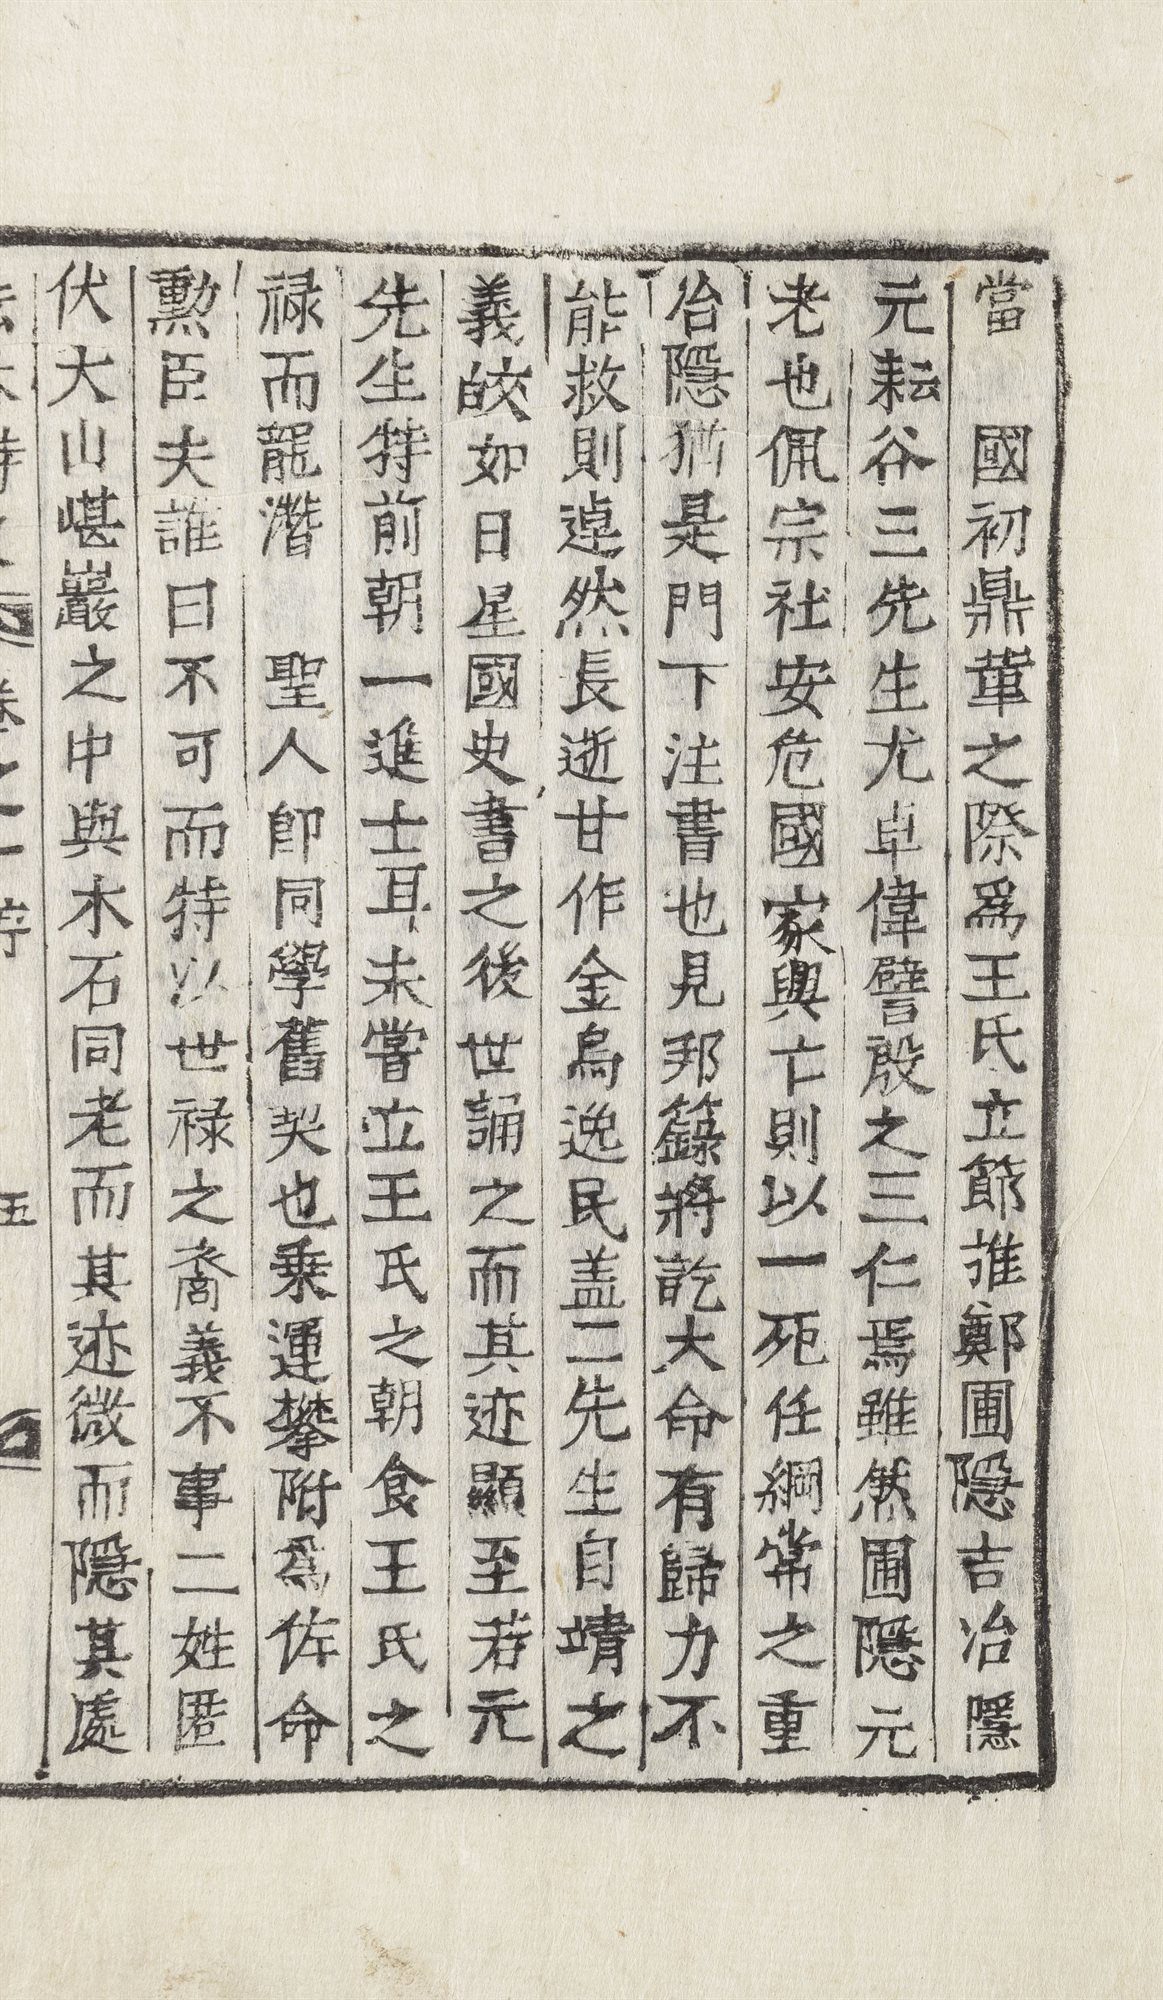 當　國初鼎革之際爲王氏立節推鄭圃隱吉冶隱
元耘谷三先生尤卓偉譬殷之三仁焉雖然圃隱元
老也佩宗社安危國家興亡則以一死任綱常之重
冶隱猶是門下注書也見邦籙將訖大命有歸力不
能救則遑然長逝甘作金烏逸民盖二先生自靖之
義皎如日星國史書之後世誦之而其迹顯至若元
先生特前朝一進士耳未嘗立王氏之朝食王氏之
禄而龍潛　聖人卽同學舊契也乗運攀附爲佐命
勲臣夫誰曰不可而特以世禄之裔義不事二姓匿
伏大山嵁巖之中與木石同老而其迹微而隱其處
卷之一 五